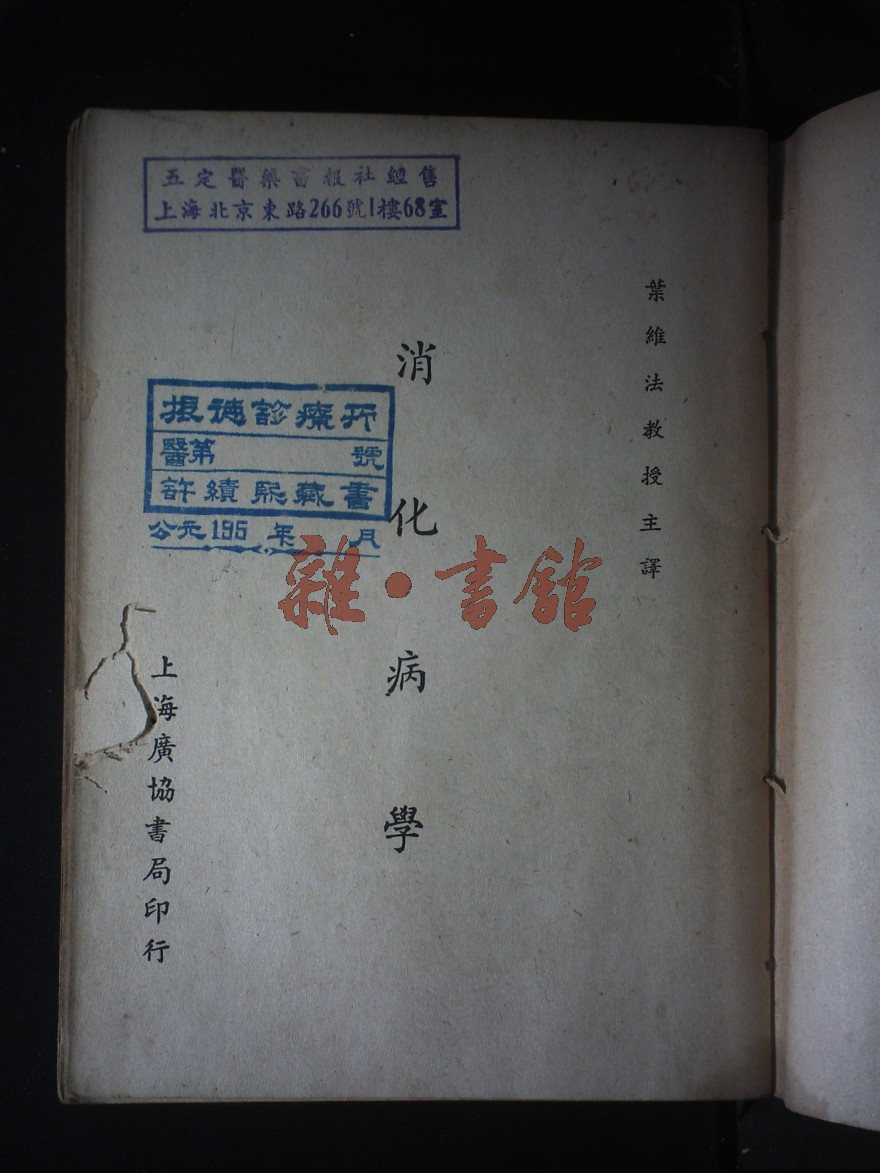 五定醫藥書報社經售
上海北京東路266號1樓68室
葉維法教授主譯
消化病學
根德診療所
醫第 號
許績熙藏書
公元195 年 月
雜·書館
上海廣協書局印行